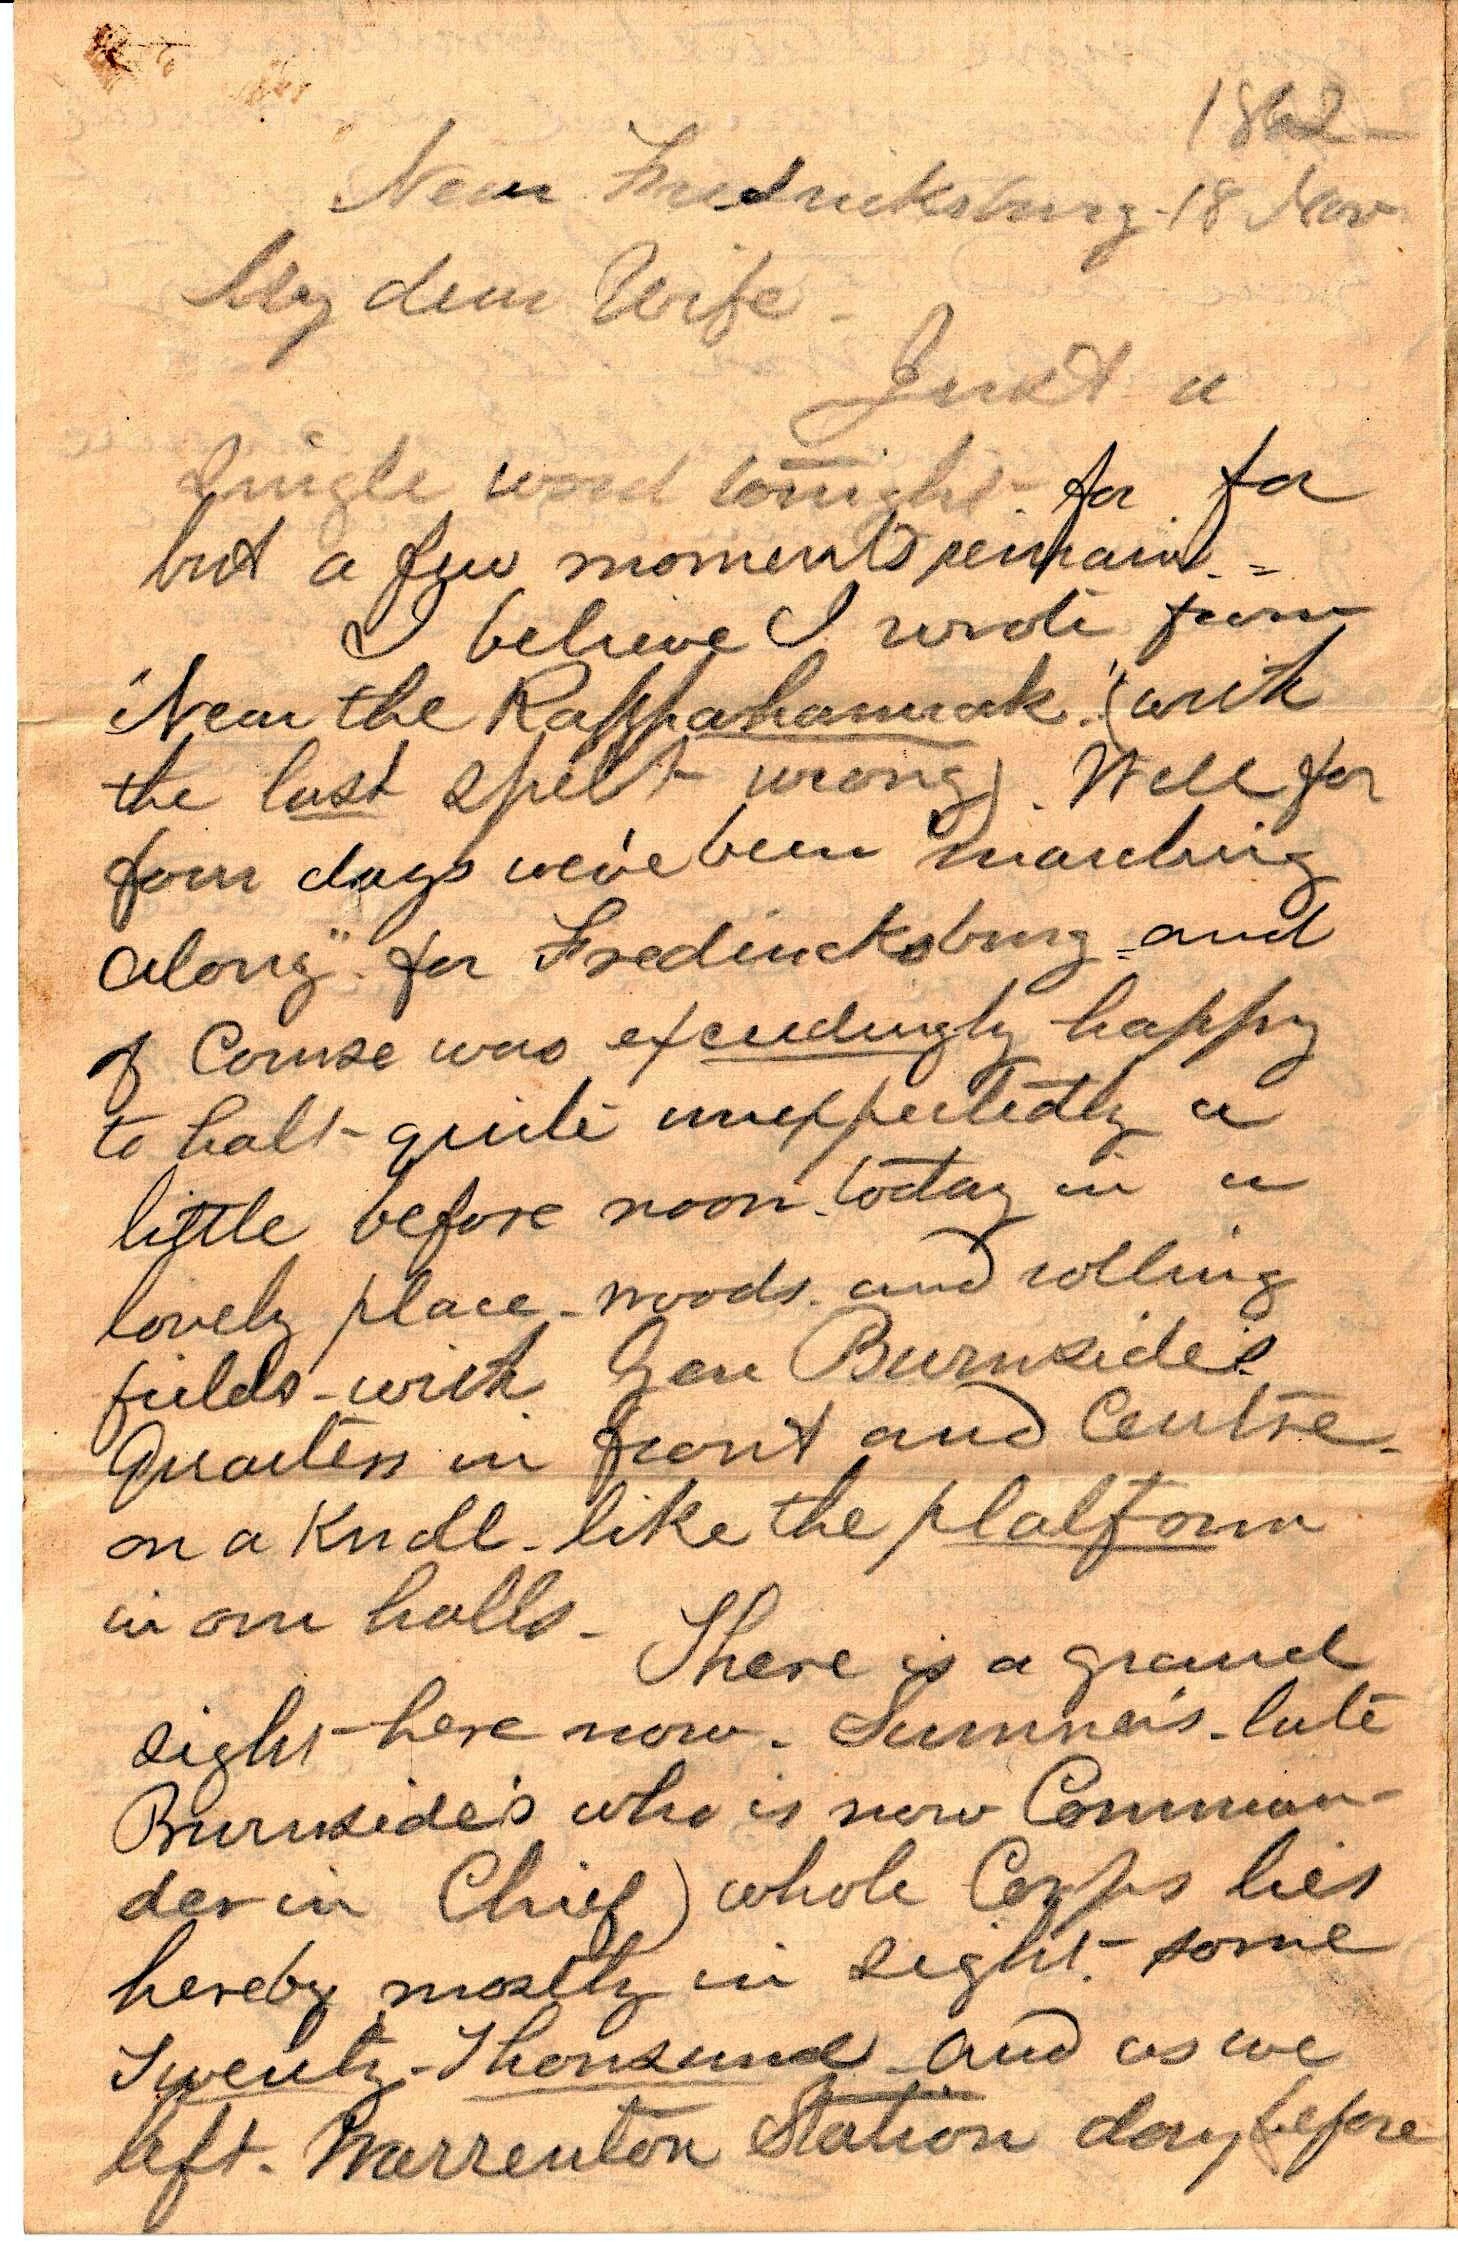 1862-
Near Fredricksburg-18 Nov
My dear Wife-
Just a
single word tonight- for for
but a few moments remain.=
I believe I wrote from
"Near the Rappahannak." (with
the last spelt wrong). Well for
four days we've been "marching
along" for Fredericksburg and
of Course was exceedingly happy
to halt- quite unexpectedly a
little before noon today in a
lovely place - woods and rolling
fields - with Gen Burnside's
Quarters in front and Centre-
on a Knoll - like the platform
in our halls-
There is a grand
sight here now - Sumner's - late
Burnside's who is now Comman-
der in Chief) whole Corps lies
hereby mostly in sight- some
Twenty-Thousand and as we
left Warrenton Station day before